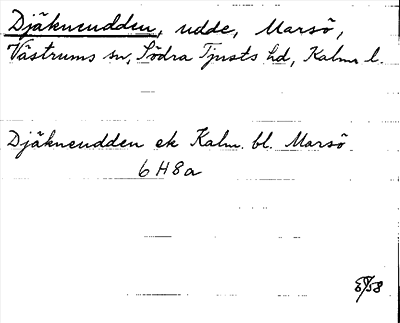 Djäkneudden, udde, Marsö,
Västrums sn, Södra Tjusts hd, Kalm. l.
Djäkneudden ek Kalm. bl. Marsö
6H8a